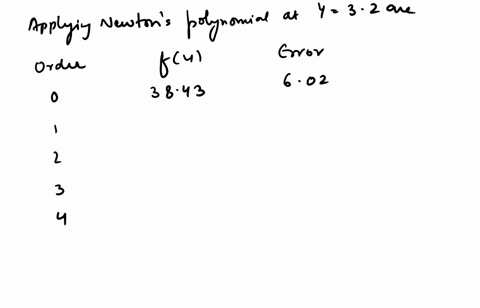 Applying Newton's polynomial at y = 3.2 are
Order f(y) Error
0 38.43 6.02
1
2
3
4